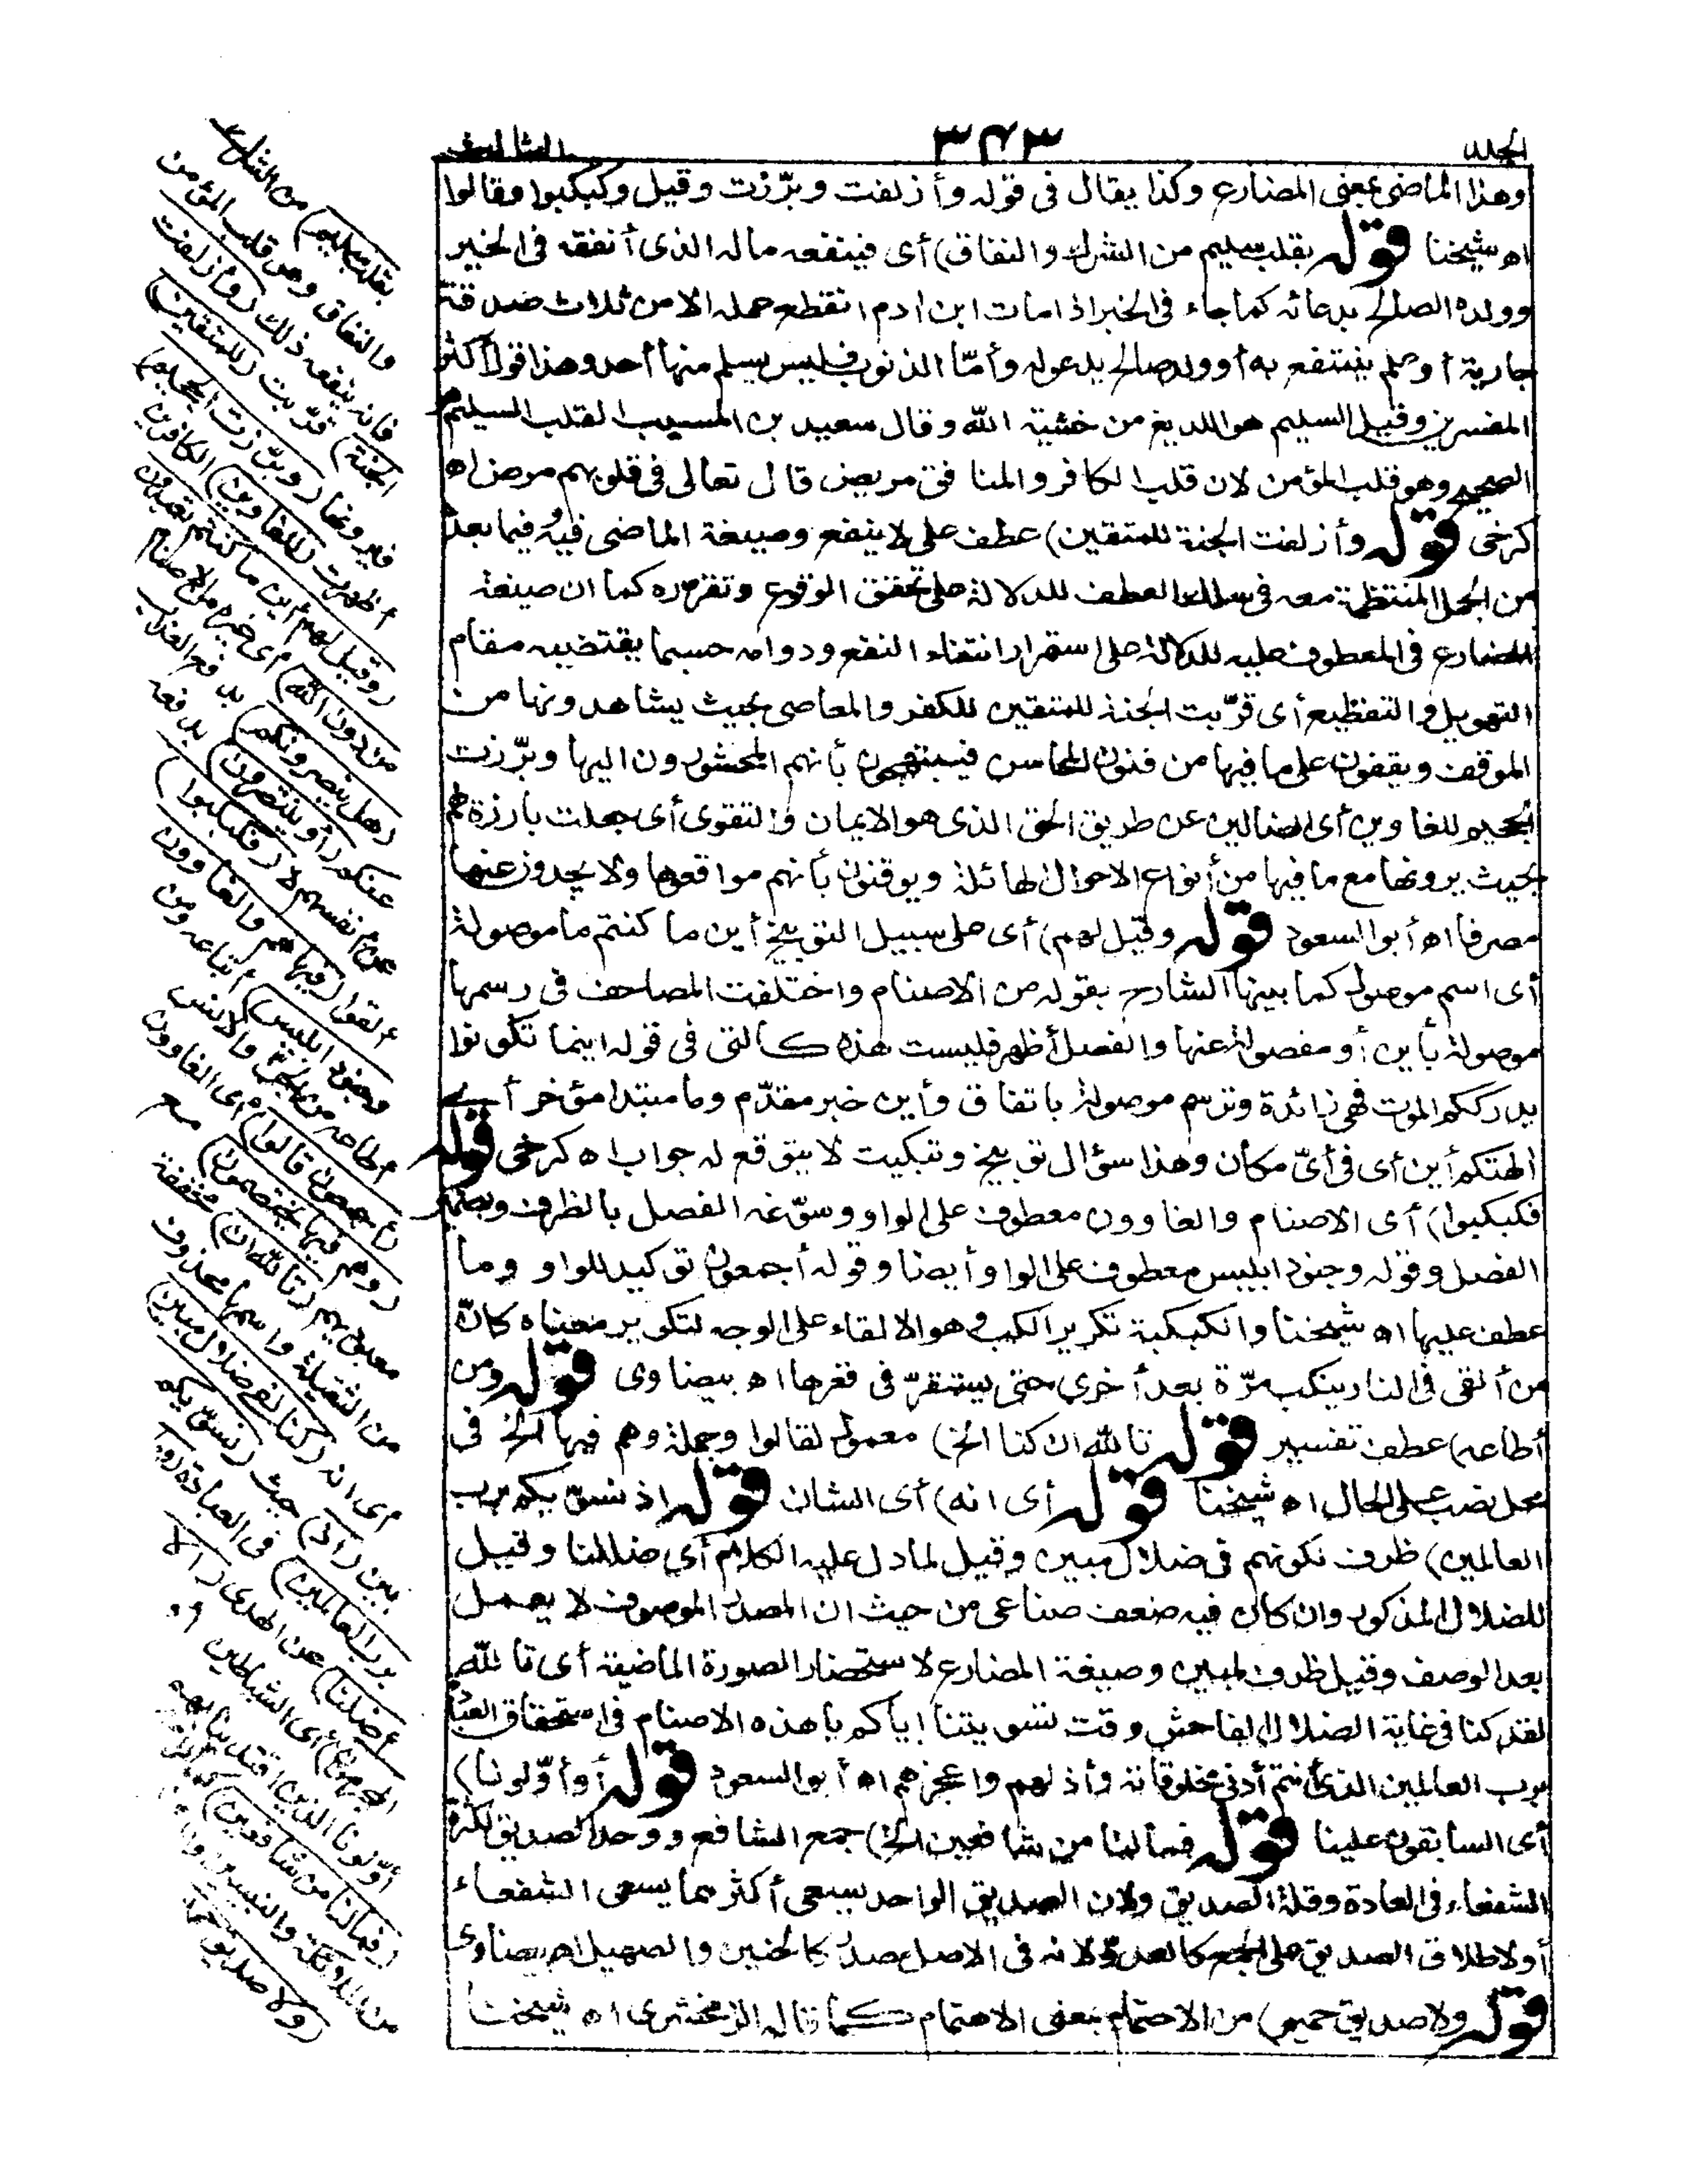 الجلد
٣٤٣
الثالث
وهذا الماضى بمعنى المضارع وكذا يقال فى قوله وأزلفت وبرّزت وقيل وكبكبوا وقالوا
اه شيخنا قوله بقلب سليم من الشرك والنفاق) أى فينفعه ماله الذى أنفقه فى الخير
وولده الصالح بدعائه كما جاء فى الخبر اذا مات ابن ادم انقطع عمله الا من ثلاث صدقة
جارية أو علم ينتفع به أو ولد صالح يدعو له وأمّا الذنوب فليس يسلم منها أحد وهذا قول أكثر
المفسرين وقيل السليم هو اللديغ من خشية الله وقال سعيد بن المسيب القلب السليم
الصحيح وهو قلب المؤمن لان قلب الكافر والمنافق مريض قال تعالى فى قلوبهم مرض اه
كرخى قوله وأزلفت الجنة للمتقين) عطف على لا ينفع وصيغة الماضى فيه وفيما بعده
من الجمل المنتظمة معه فى سلك العطف للدلالة على تحقق الوقوع وتقرره كما ان صيغة
المضارع فى المعطوف عليه للدلالة على استمرار انتفاء النفع ودوامه حسبما يقتضيه مقام
التهويل والتفظيع أى قرّبت الجنة للمتقين للكفر والمعاصى بحيث يشاهدونها من
الموقف ويقفون على ما فيها من فنون المحاسن فيبتهجون بأنهم المحشورون اليها وبرّزت
الجحيم للغاوين أى الضالين عن طريق الحق الذى هو الايمان والتقوى أى جعلت بارزة لهم
بحيث يرونها مع ما فيها من أنواع الاحوال الهائلة ويوقنون بأنهم مواقعوها ولا يجدون عنها
مصرفا اه أبو السعود قوله وقيل لهم) أى على سبيل التوبيخ أين ما كنتم ما موصولة
أى اسم موصول كما بينها الشارح بقوله من الاصنام واختلفت المصاحف فى رسمها
موصولة بأين أو مفصولة عنها والفصل أظهر فليست هذه كالتى فى قوله اينما تكونوا
يدرككم الموت فهى زائدة وترسم موصولة باتفاق وأين خبر مقدّم وما مبتدا مؤخر أى
الهتكم أين أى فى أىّ مكان وهذا سؤال توبيخ وتبكيت لا يتوقع له جواب اه كرخى قوله
فكبكبوا) أى الاصنام والغاوون معطوف على الواو وسوّغه الفصل بالظرف وبضمير
الفصل وقوله وجنود ابليس معطوف على الواو أيضا وقوله أجمعون توكيد للواو وما
عطف عليها اه شيخنا والكبكبة تكرير الكب وهو الالقاء على الوجه لتكرير معناه كانّ
من ألقى فى النار ينكب مرّة بعد أخرى حتى يستقرّ فى قعرها اه بيضاوى قوله ومن
أطاعه) عطف تفسير قوله تالله ان كنا الخ) معمول لقالوا وجملة وهم فيها الخ فى
محل نصب على الحال اه شيخنا قوله أى انه) أى الشان قوله اذ نسوّيكم برب
العالمين) ظرف لكونهم فى ضلال مبين وقيل لما دل عليه الكلام أى ضللنا وقيل
للضلال المذكور وان كان فيه ضعف صناعى من حيث ان المصدر الموصوف لا يعمل
بعد الوصف وقيل ظرف لمبين وصيغة المضارع لاستحضار الصورة الماضية أى تالله
لقد كنا فى غاية الضلال الفاحش وقت تسويتنا اياكم يا هذه الاصنام فى استحقاق العبادة
برب العالمين الذى أنتم أدنى مخلوقاته وأذلهم واعجزهم اه أبو السعود قوله أو أوّلونا)
أى السابقون علينا قوله فما لنا من شافعين الخ) جمع الشافع ووحد الصديق لكثرة
الشفعاء فى العادة وقلة الصديق ولان الصديق الواحد يسعى أكثر مما يسعى الشفعاء
أو لاطلاق الصديق على الجمع كالعدوّ لانه فى الاصل مصدر كالحنين والصهيل اه بيضاوى
قوله ولا صديق حميم) من الاحتمام بمعنى الاهتمام كما قاله الزمخشرى اه شيخنا
بقلب سليم) من الشرك
والنفاق وهو قلب المؤمن
فانه ينفعه ذلك (وأزلفت
الجنة) قرّبت (للمتقين)
فيرونها (وبرّزت الجحيم)
أظهرت (للغاوين) الكافرين
(وقيل لهم أين ما كنتم تعبدون
من دون الله) أى غيره من الاصنام
(هل ينصرونكم) بدفع العذاب
عنكم (أو ينتصرون) بدفعه
عن أنفسهم لا (فكبكبوا)
ألقوا (فيها هم والغاوون
وجنود ابليس) أتباعه ومن
أطاعه من الجنّ والانس
(أجمعون قالوا) أى الغاوون
(وهم فيها يختصمون) مع
معبوديهم (تالله ان) مخففة
من الثقيلة واسمها محذوف
أى انه (كنا لفى ضلال مبين)
بين (اذ) حيث (نسوّيكم
برب العالمين) فى العبادة (وما
أضلنا) عن الهدى (الا
المجرمون) أى الشياطين أو
أوّلونا الذين اقتدينا بهم
(فما لنا من شافعين)
من الملائكة والنبيين
(ولا صديق حميم)